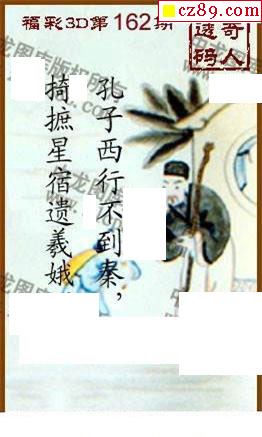 cz89.com
福彩3D第162期
奇人透码
孔子西行不到秦，
掎摭星宿遗羲娥